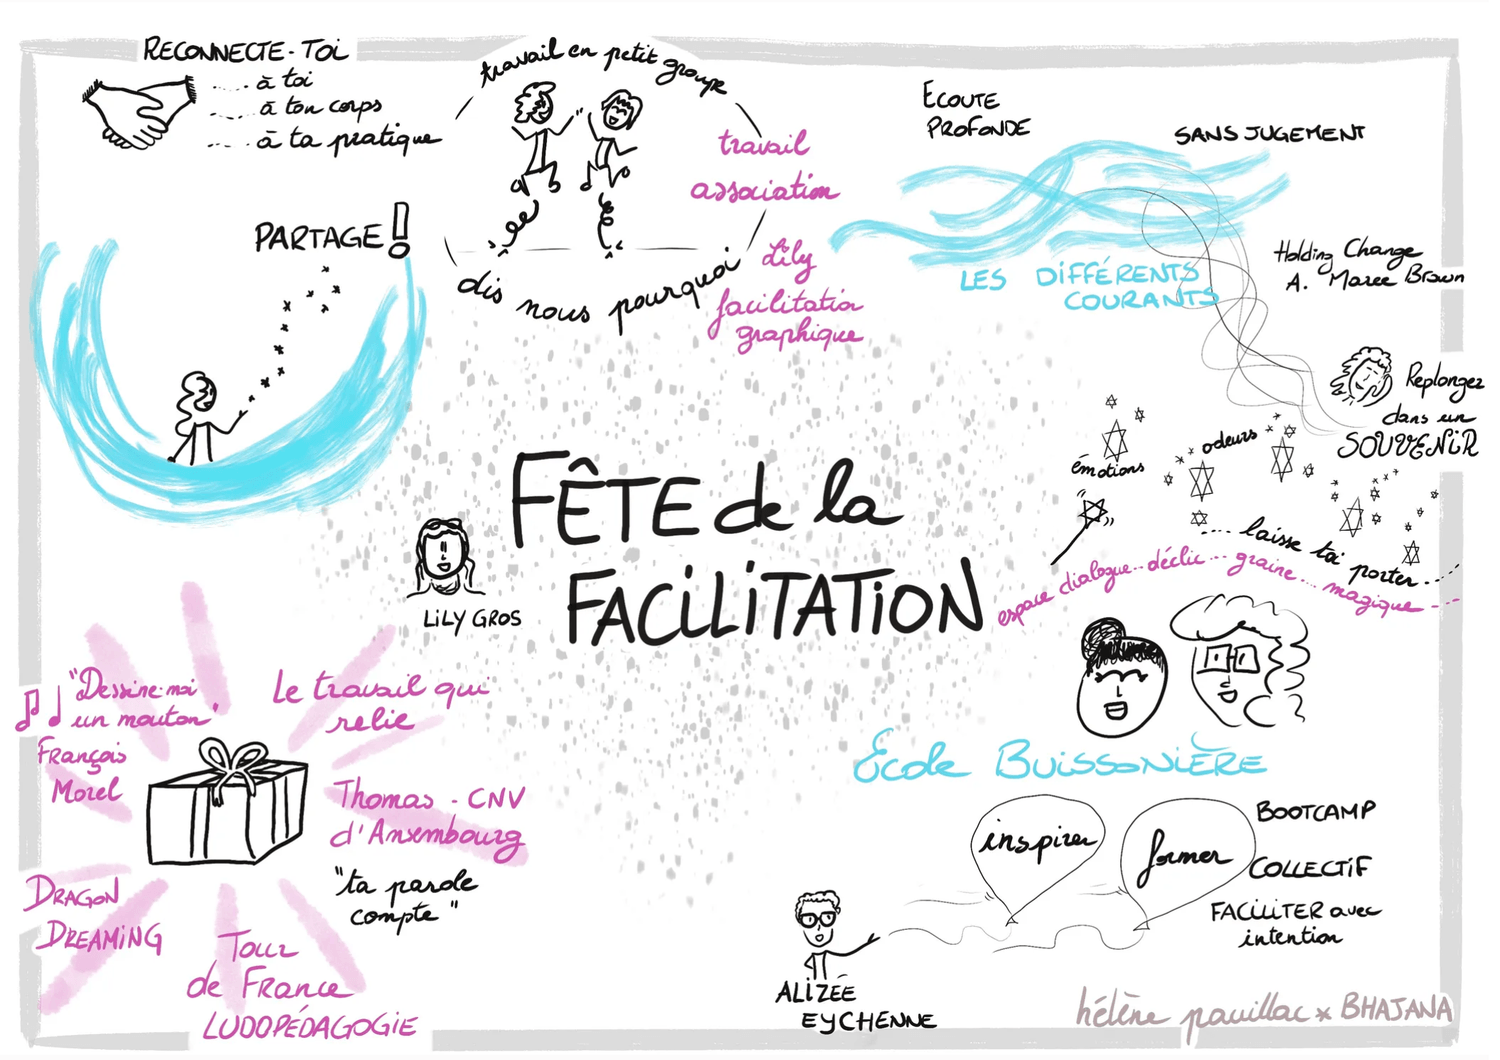 RECONNECTE-TOI
..... à toi
..... à ton corps
.... à ta pratique
travail en petit groupe
dis nous pourquoi
travail
association
Lily
facilitation
graphique
ECOUTE
PROFONDE
SANS JUGEMENT
LES DIFFÉRENTS
COURANTS
Holding Change
A. Maree Brown
PARTAGE !
Replongez
dans un
SOUVENIR
émotions
odeurs
... laisse toi porter ...
espace dialogue .. déclic ... graine ... magique ---
FÊTE de la
FACILITATION
LILY GROS
"Dessine-moi
un mouton"
François
Morel
Le travail qui
relie
Thomas - CNV
d'Ansembourg
"ta parole
compte"
DRAGON
DREAMING
Tour
de France
LUDOPÉDAGOGIE
École BUISSONIÈRE
inspirer
former
BOOTCAMP
COLLECTIF
FACILITER avec
intention
ALIZÉE
EYCHENNE
hélène pouillac x BHAJANA